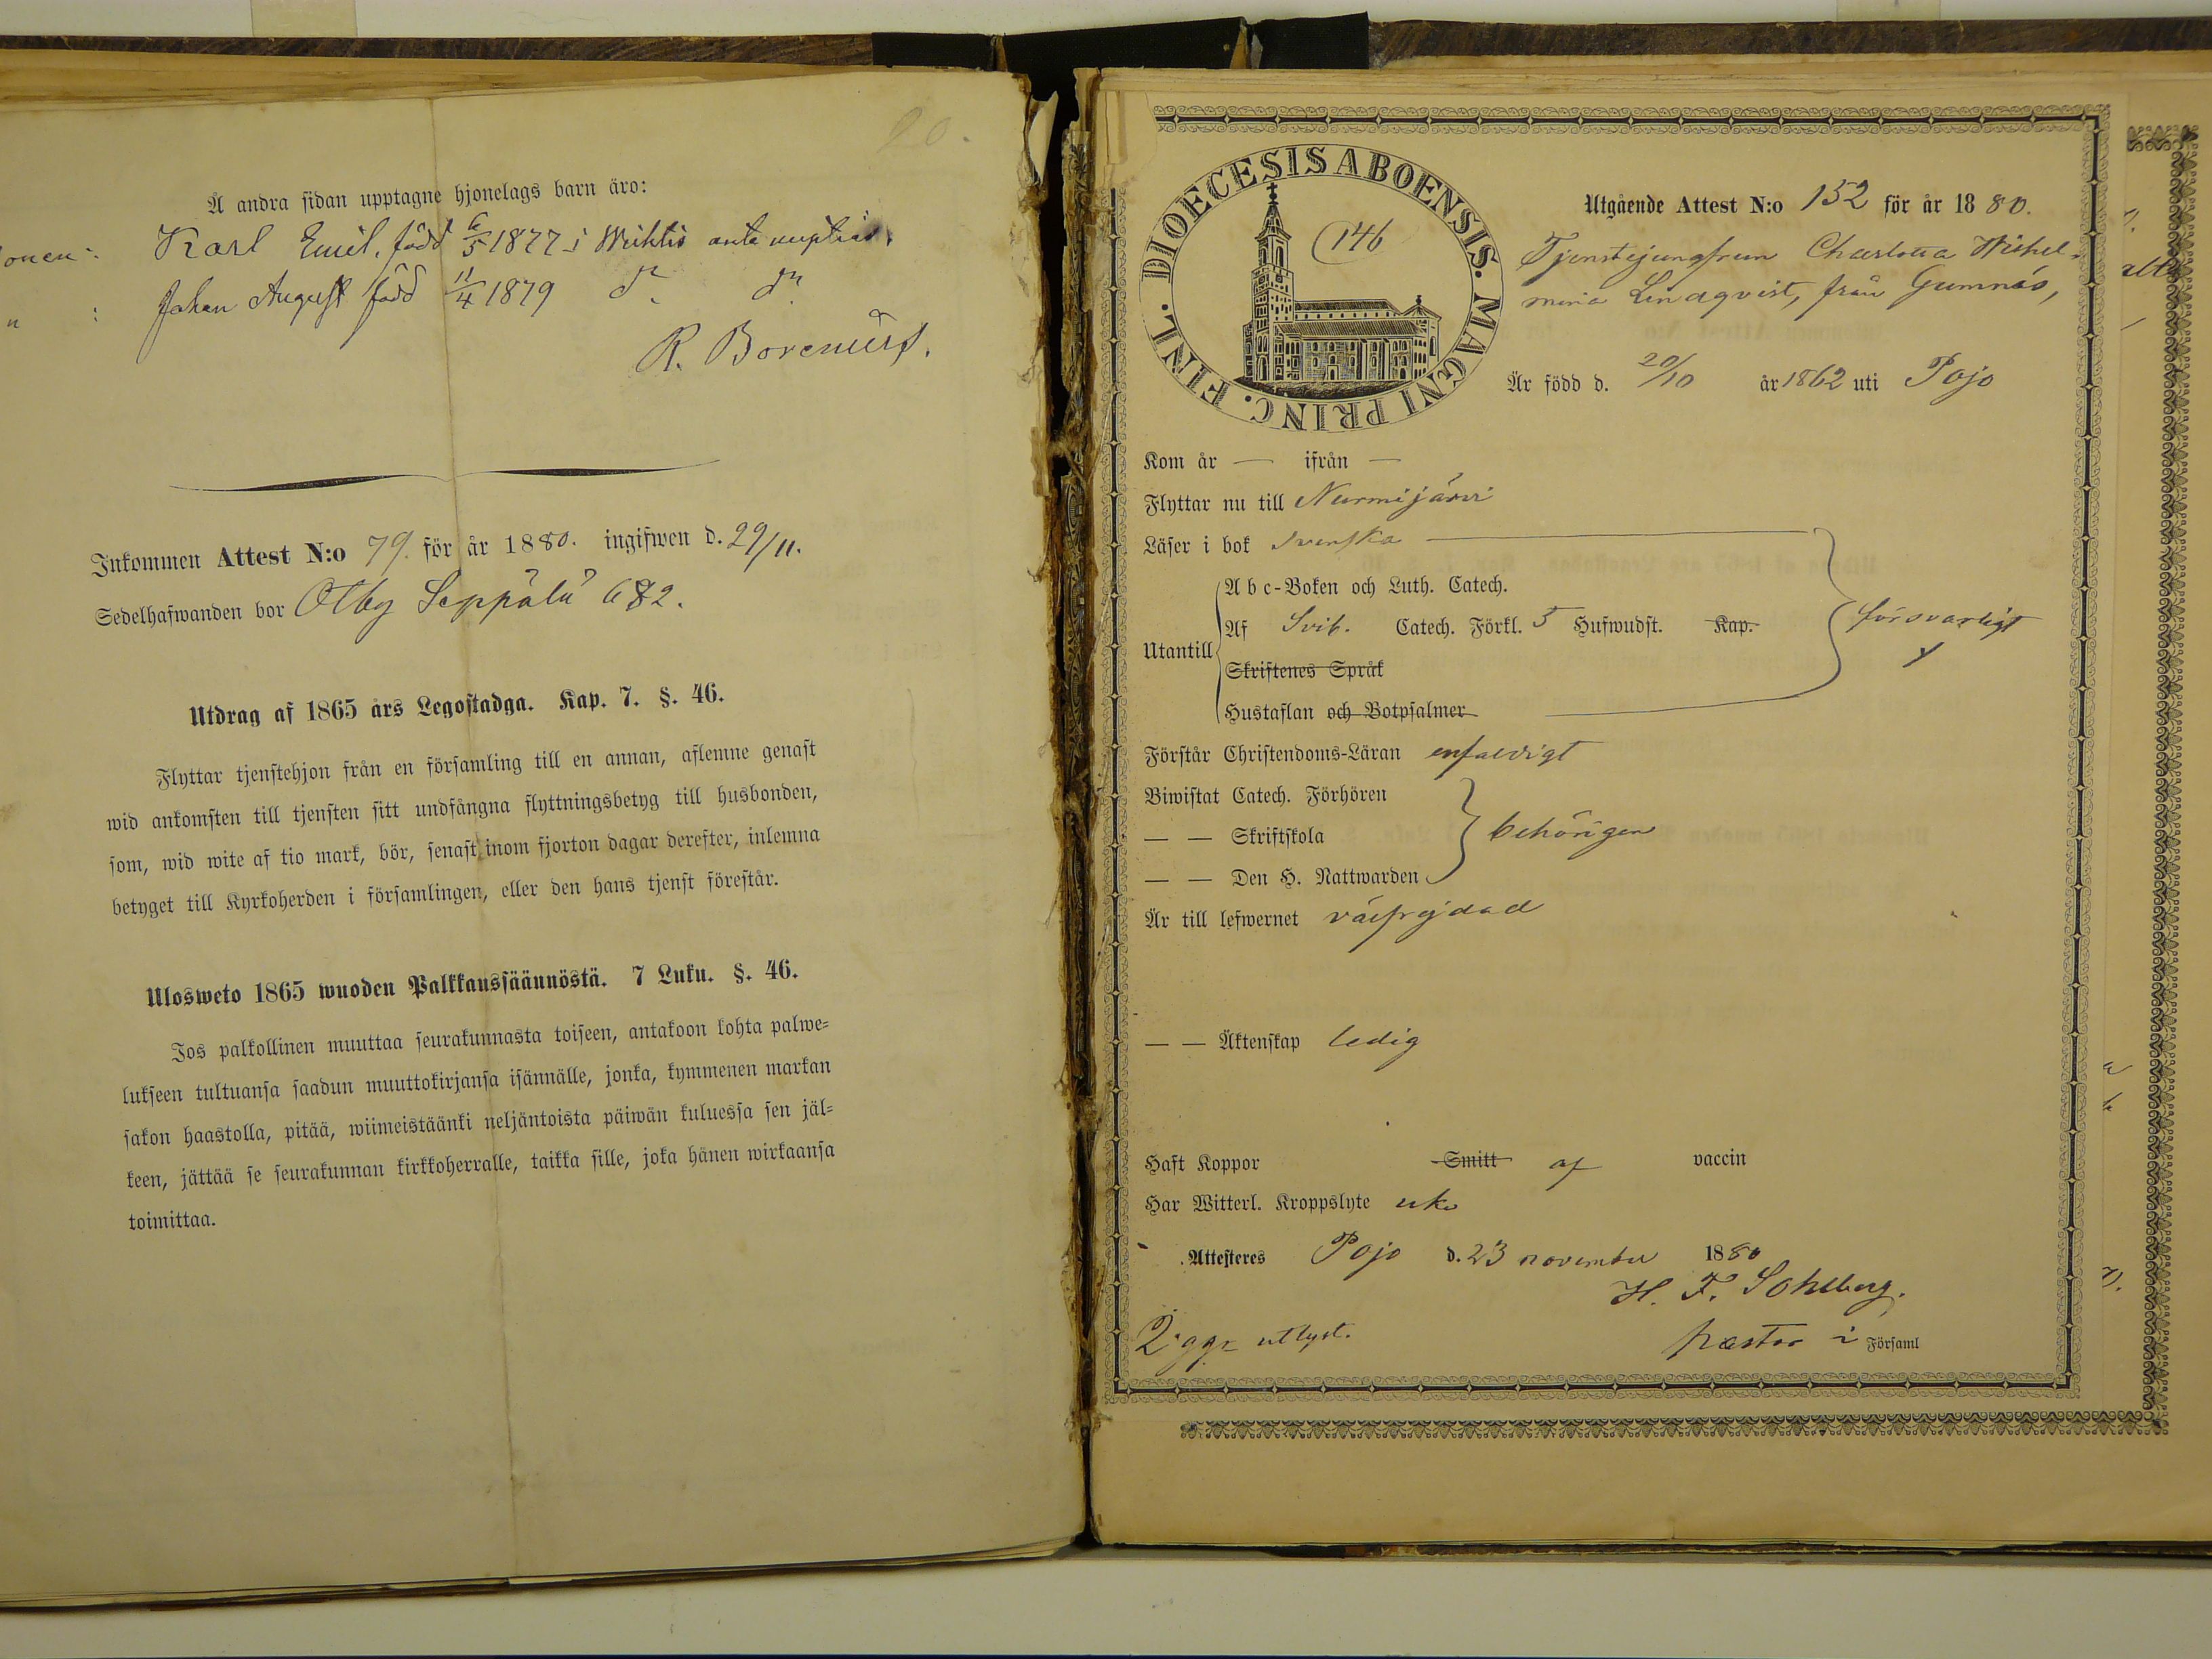 20.
Å andra sidan upptagne hjonelags barn äro:
onen: Karl Emil, född 6/5 1877 i Wichtis ante nuptias.
n : Johan August född 11/4 1879 do do
R. Borenius.
Inkommen Attest N:o 79. för år 1880. ingifwen d. 29/11.
Sedelhafwanden bor Olby Seppälä 682.
Utdrag af 1865 års Legostadga. Kap. 7. §. 46.
Flyttar tjenstehjon från en församling till en annan, aflemne genast
wid ankomsten till tjensten sitt undfångna flyttningsbetyg till husbonden,
som, wid wite af tio mark, bör, senast inom fjorton dagar derefter, inlemna
betyget till Kyrkoherden i församlingen, eller den hans tjenst förestår.
Ulosweto 1865 wuoden Palkkaussäännöstä. 7 Luku. §. 46.
Jos palkollinen muuttaa seurakunnasta toiseen, antakoon kohta palwe-
lukseen tultuansa saadun muuttokirjansa isännälle, jonka, kymmenen markan
sakon haastolla, pitää, wiimeistäänki neljäntoista päiwän kuluessa sen jäl-
keen, jättää se seurakunnan kirkkoherralle, taikka sille, joka hänen wirkaansa
toimittaa.
DIOECESIS ABOENSIS. MAGNI PRINC. FINL.
146
Utgående Attest N:o 152 för år 1880.
Tjenstejungfrun Charlotta Wilhel-
mina Lindqvist, från Gumnäs,
Är född d. 20/10 år 1862 uti Pojo
Kom år — ifrån —
Flyttar nu till Nurmijärvi
Läser i bok svenska
Utantill
A b c-Boken och Luth. Catech.
Af Svib. Catech. Förkl. 5 Hufwudst. Kap.
Skriftenes Språk
Hustaflan och Botpsalmer
försvarligt
Förstår Christendoms-Läran enfaldigt
Biwistat Catech. Förhören
— — Skriftskola
— — Den H. Nattwarden
behörigen
Är till lefwernet välfrejdad
— — Äktenskap ledig
Haft Koppor Smitt af vaccin
Har Witterl. Kroppslyte icke
Attesteres Pojo d. 23 november 1880
H. F. Sohlberg.
2 ggr utlyst.
Pastor i Församl